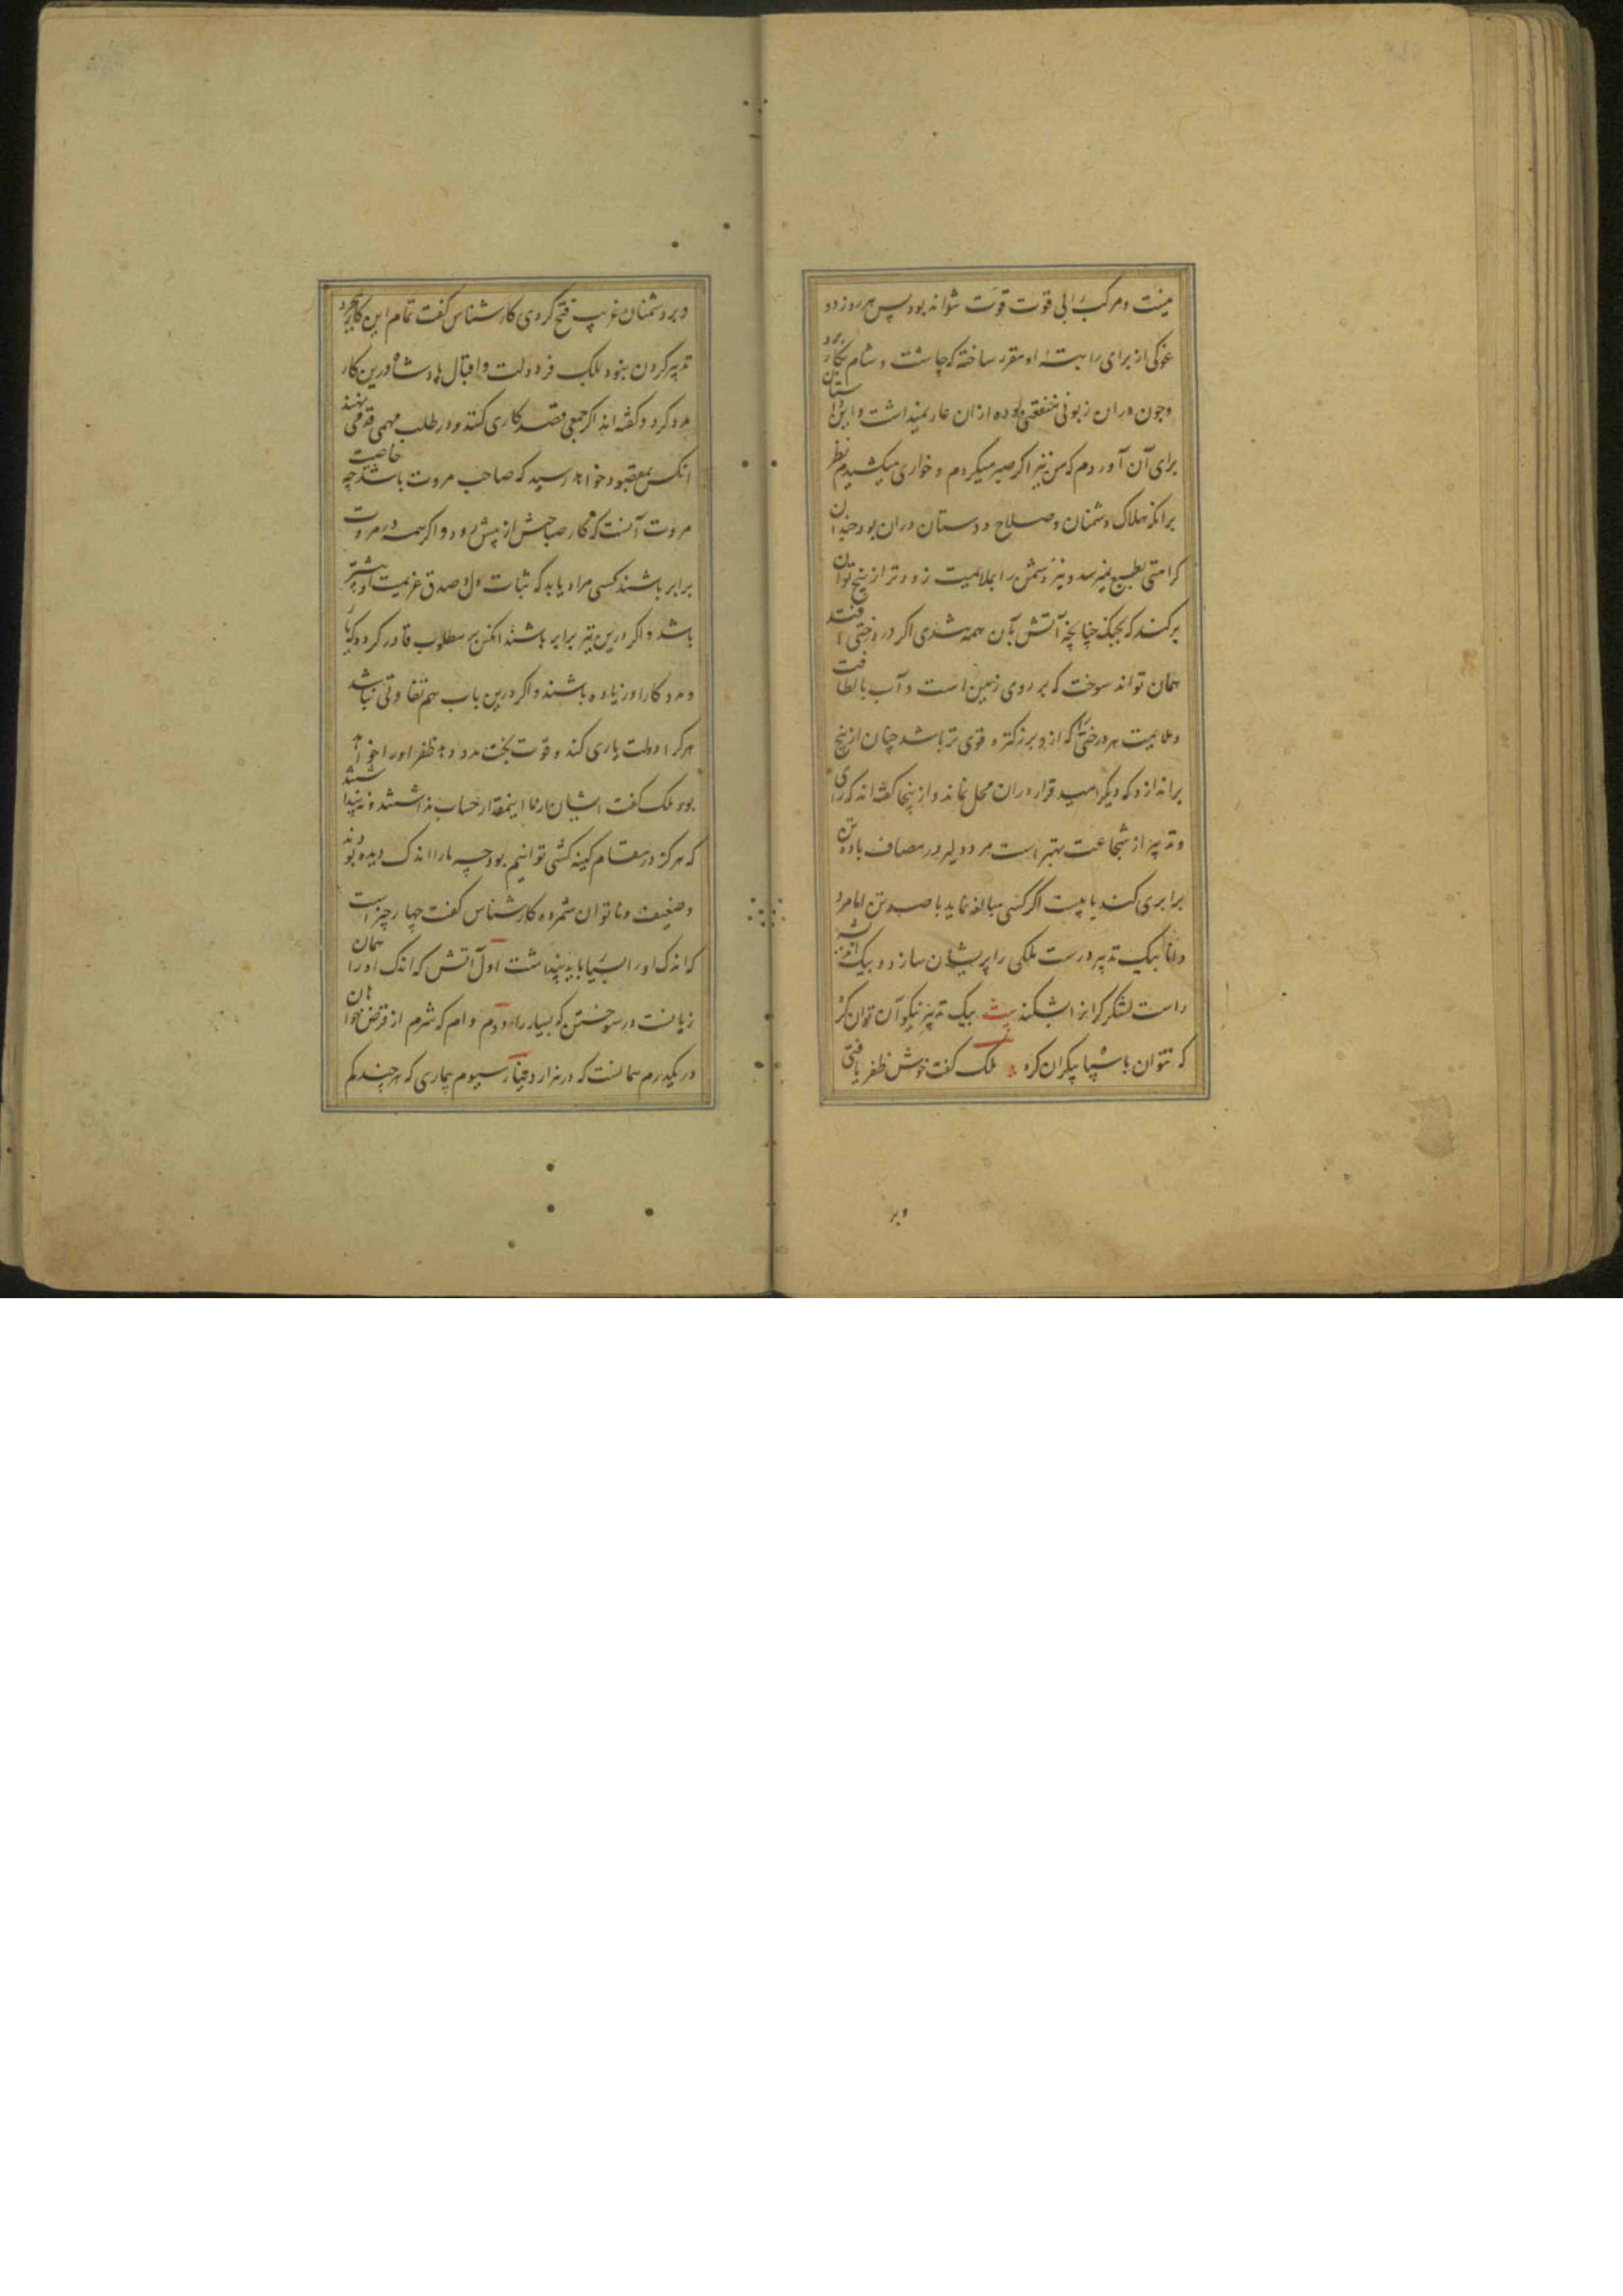 نیست و مرکب را بی قوت قوت نتواند بود پس هر روز دو
غوکی از برای راتبه او مقرر ساخته که چاشت و شام بکار برد
و چون در ان زبونی منفعتی بوده از ان عار نمیداشت و این داستان
برای آن آوردم که من نیز اکر صبر میکردم و خواری میکشیدم نظر
برانکه هلاک دشمنان و صلاح دوستان دران بود چندان
کرامتی بطبع نمیرسد و نیز دشمن را بملایمیت زودتر از بیخ توان
برکند که بجنک چنانچه آتش بآن همه شدی اکر در درختی افتد
همان تواند سوخت که بر روی زمین است و آب با لطافت
و ملایمیت هر درختی را که ازو بزرکتر و قوی تر باشد چنان از بیخ
براندازد که دیکر امید قرار دران محل نماند و ازینجا کفته اند که رای
و تدبیر از شجاعت بهتر است مرد دلیر در مصاف با ده تن
برابری کند یا بیست اکر کسی مبالغه نماید با صد تن اما مرد
دانا بیک تدبیر درست ملکی را پریشان سازد و بیک اندیشه
راست لشکر کرانرا بشکند بیت بیک تدبیر نیکو آن توان کرد
که نتوان با سپاه بیکران کرد ملک کفت خوش ظفر یافتی
و بر
و بر دشمنان غریب فتح کردی کارشناس کفت تمام این کار بمجرد
تدبیر کردن نبود بلکه فر دولت و اقبال پادشاه درین کار
مدد کرد و کفته اند اکر جمعی قصد کاری کنند و در طلب مهمی قدمی نهند
انکس بمقصود خواهد رسید که صاحب مروت باشد چه خاصیت
مروت آنست که کار صاحبش از پیش رود و اکر همه در مروت
برابر باشند کسی مراد یابد که ثبات دل و صدق عزیمت او بیشتر
باشد و اکر درین نیز برابر باشند انکس بر مطلوب قادر کردد که یار
و مددکار او زیاده باشند و اکر درین باب هم تفاوتی نباشد
هرکرا دولت یاری کند و قوت بخت مدد دهد ظفر او را خواهد
بود ملک کفت ایشان ما را اینمقدار حساب نداشتند و نه پنداشتند
که هرکز در مقام کینه کشی توانیم بود چه ما را اندک دیده بودند
و ضعیف و ناتوان شمرده کارشناس کفت چهار چیز است
که اندک او را بسیار باید پنداشت اول آتش که اندک او را همان
زیانست در سوختن که بسیار را دوم وام که شرم از قرض خواهان
در یکدرم همانست که در هزار دینار سیوم بیماری که هرچند کم